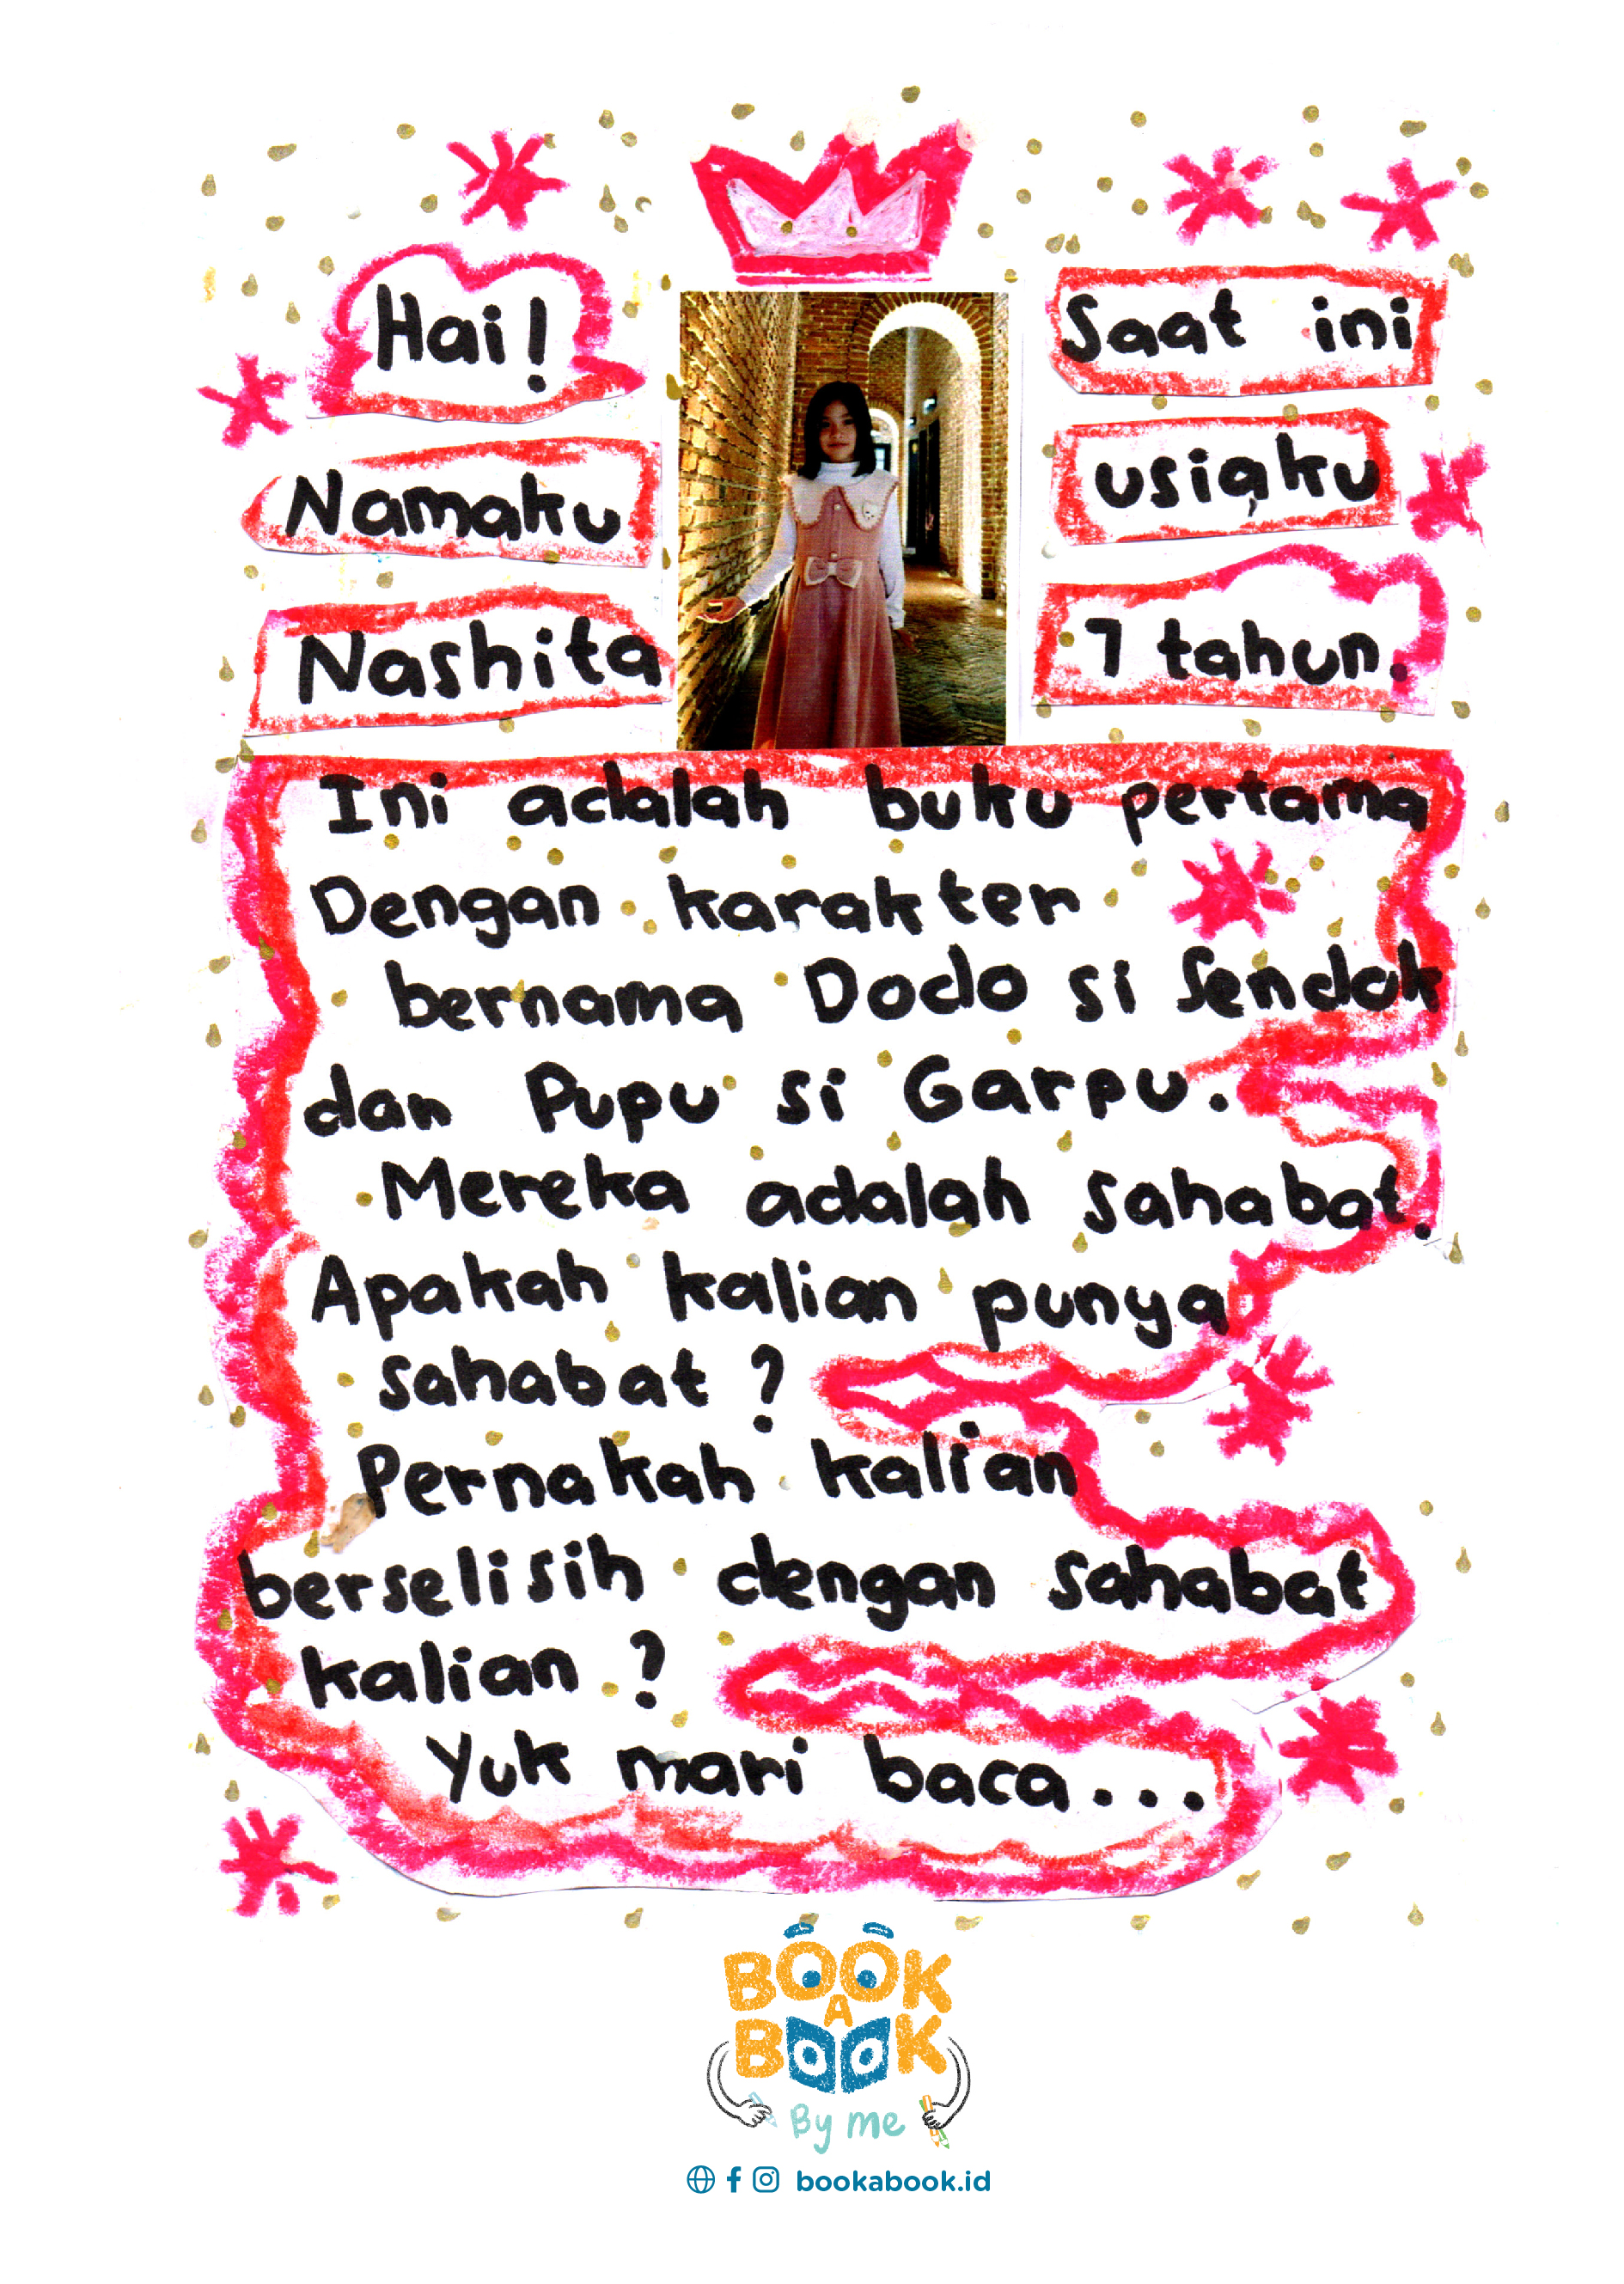 Hai!
Namaku
Nashita
Saat ini
usiaku
7 tahun.
Ini adalah buku pertama
Dengan karakter
bernama Dodo si Sendok
dan Pupu si Garpu.
Mereka adalah sahabat.
Apakah kalian punya
sahabat?
Pernakah kalian
berselisih dengan sahabat
kalian?
Yuk mari baca...
BOOK
A
BOOK
By me
bookabook.id